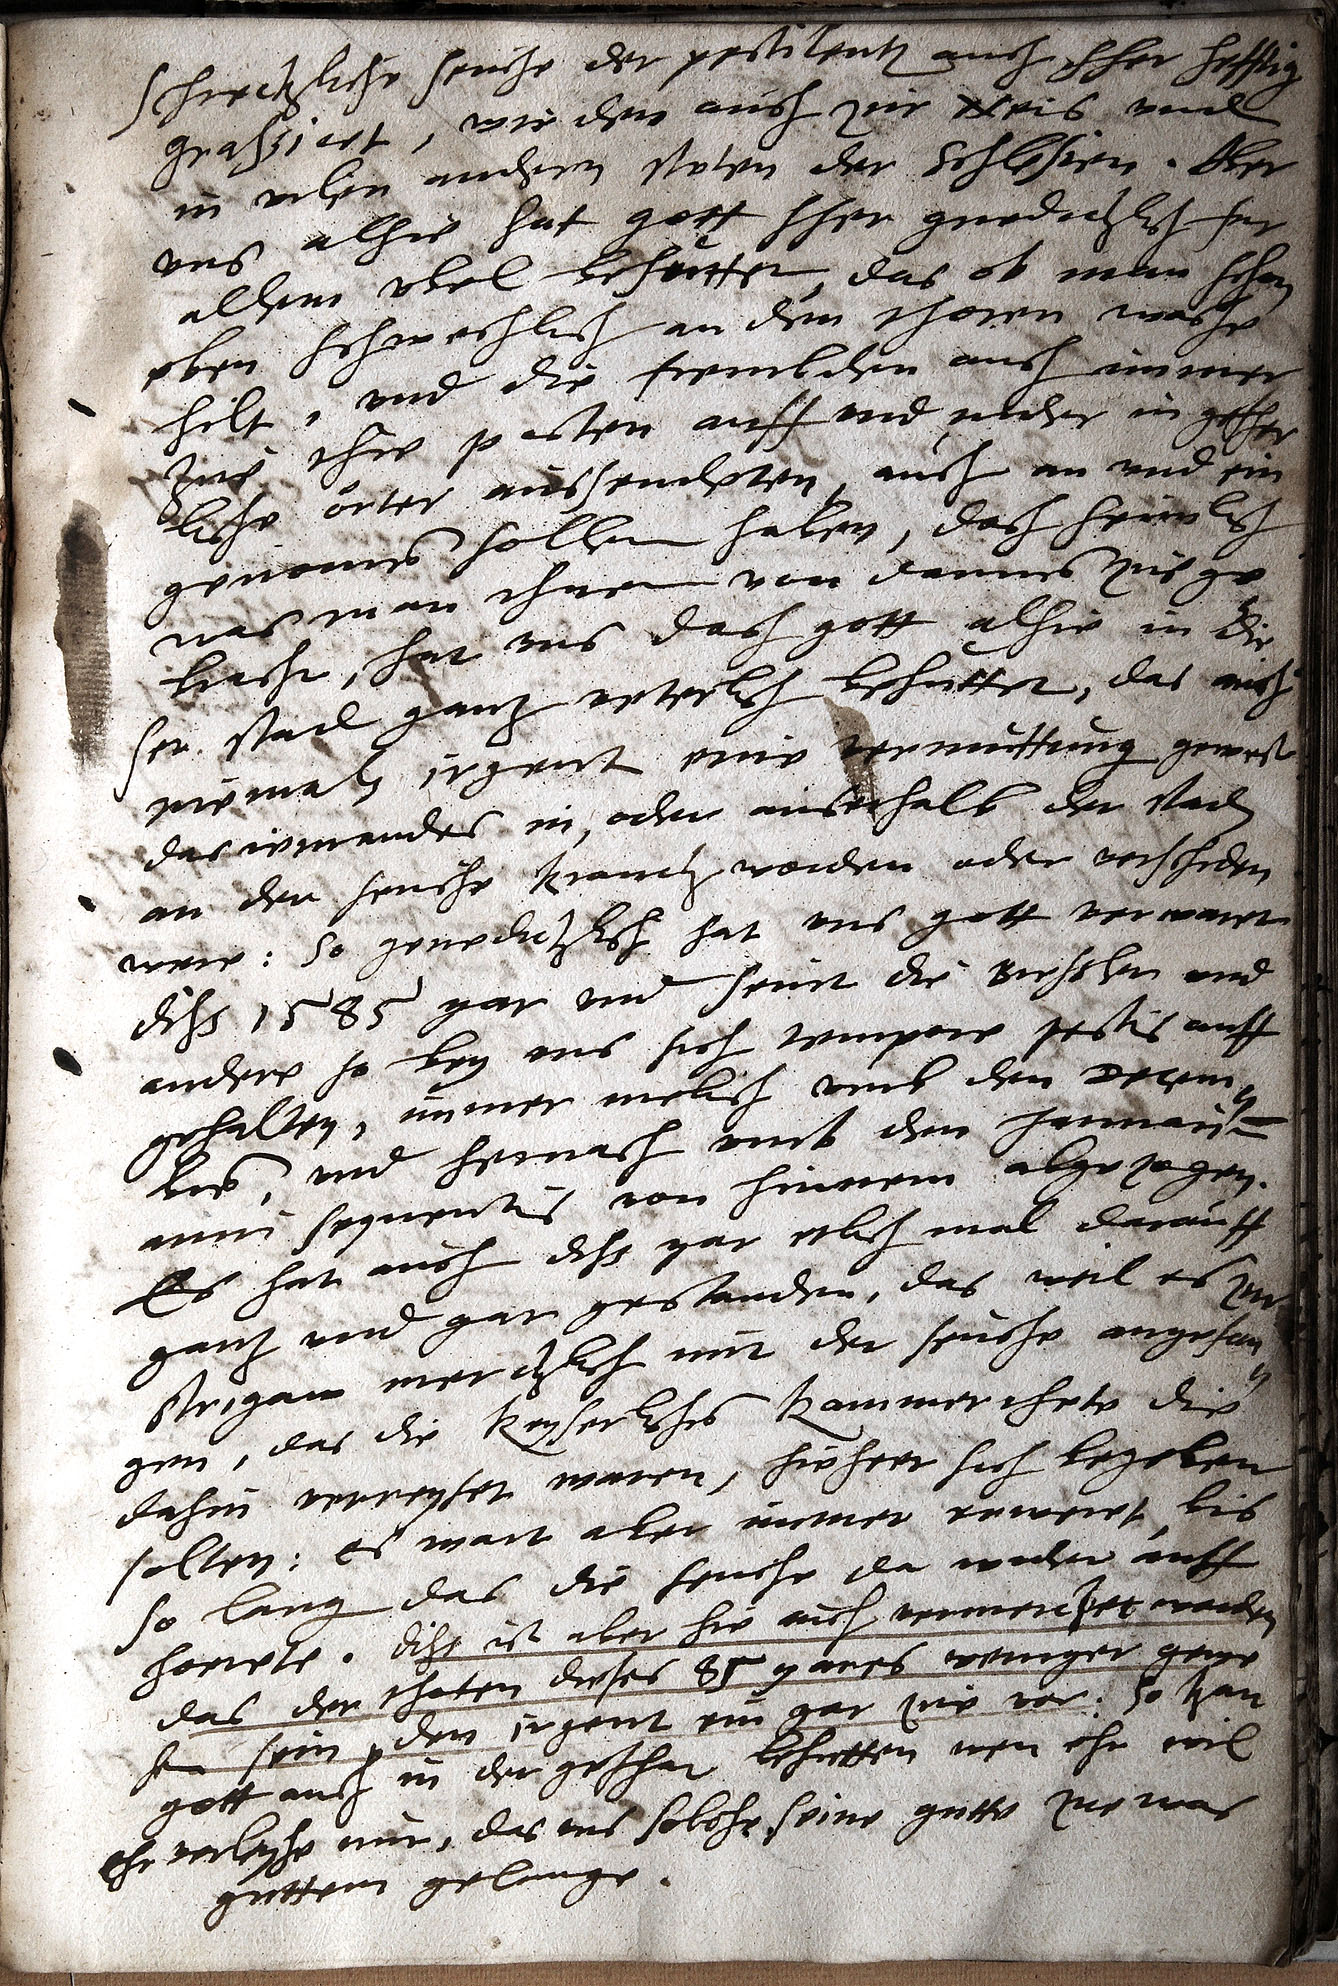 schreckliche seuche der pestilentz auch sher hefftig
grassiret, wie den auch zur Neis und
in vilen andern steten der Schlesien. Aber
uns alhie hat gott sher gnediglich fur
allem ubel behuttet, das ob man schon
eben schwechlich an den thoren wache
hilt, und die frembden auch immer
zue ihre posten auff und nider in gefher
liche örter aussendeten, auch an und ein
genomen sollen haben, doch heimlich
was man ihnen von dannen zuege
bracht, hat uns doch gott alhie in die
ser stad gantz veterlich behuttet, das auch
niemals irgent eine vermuttung gewest
das iemandes in, oder ausserhalb der stad
an der seuche kranck worden oder verschiden
were: so genediglich hat uns gott verwaret
diss 1585 yar und seint die und
andere so bey uns sich tempore pestis auff
gehalten, immer melich umb den Decem
ber, und hernach umb den Januariu
anni sequentis von hinnen abgezogen.
Es hat auch diss yar etlich mal darauff
gantz und gar gestanden, das weil es zur
Strigaw mercklich mit der seuche angefan
gen, das die Keyserliches Kammerrhete die
dahin verreyset waren, hieher sich begeben
solten: es wart aber immer verweret, bis
so lang das die seuche da wider auff
horete. Diss ist aber hie auch vermercket worden
das der thoten dieses 85 yares weniger gewe
sen sein, den irgent ein yar zue vor: so kan
gott auch in der gefhar behutten wen ehr wil
ehr verleyhe nur, das uns solche seine gutte zue was
guttem gelange.